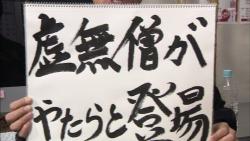 虚無僧が
やたらと登場